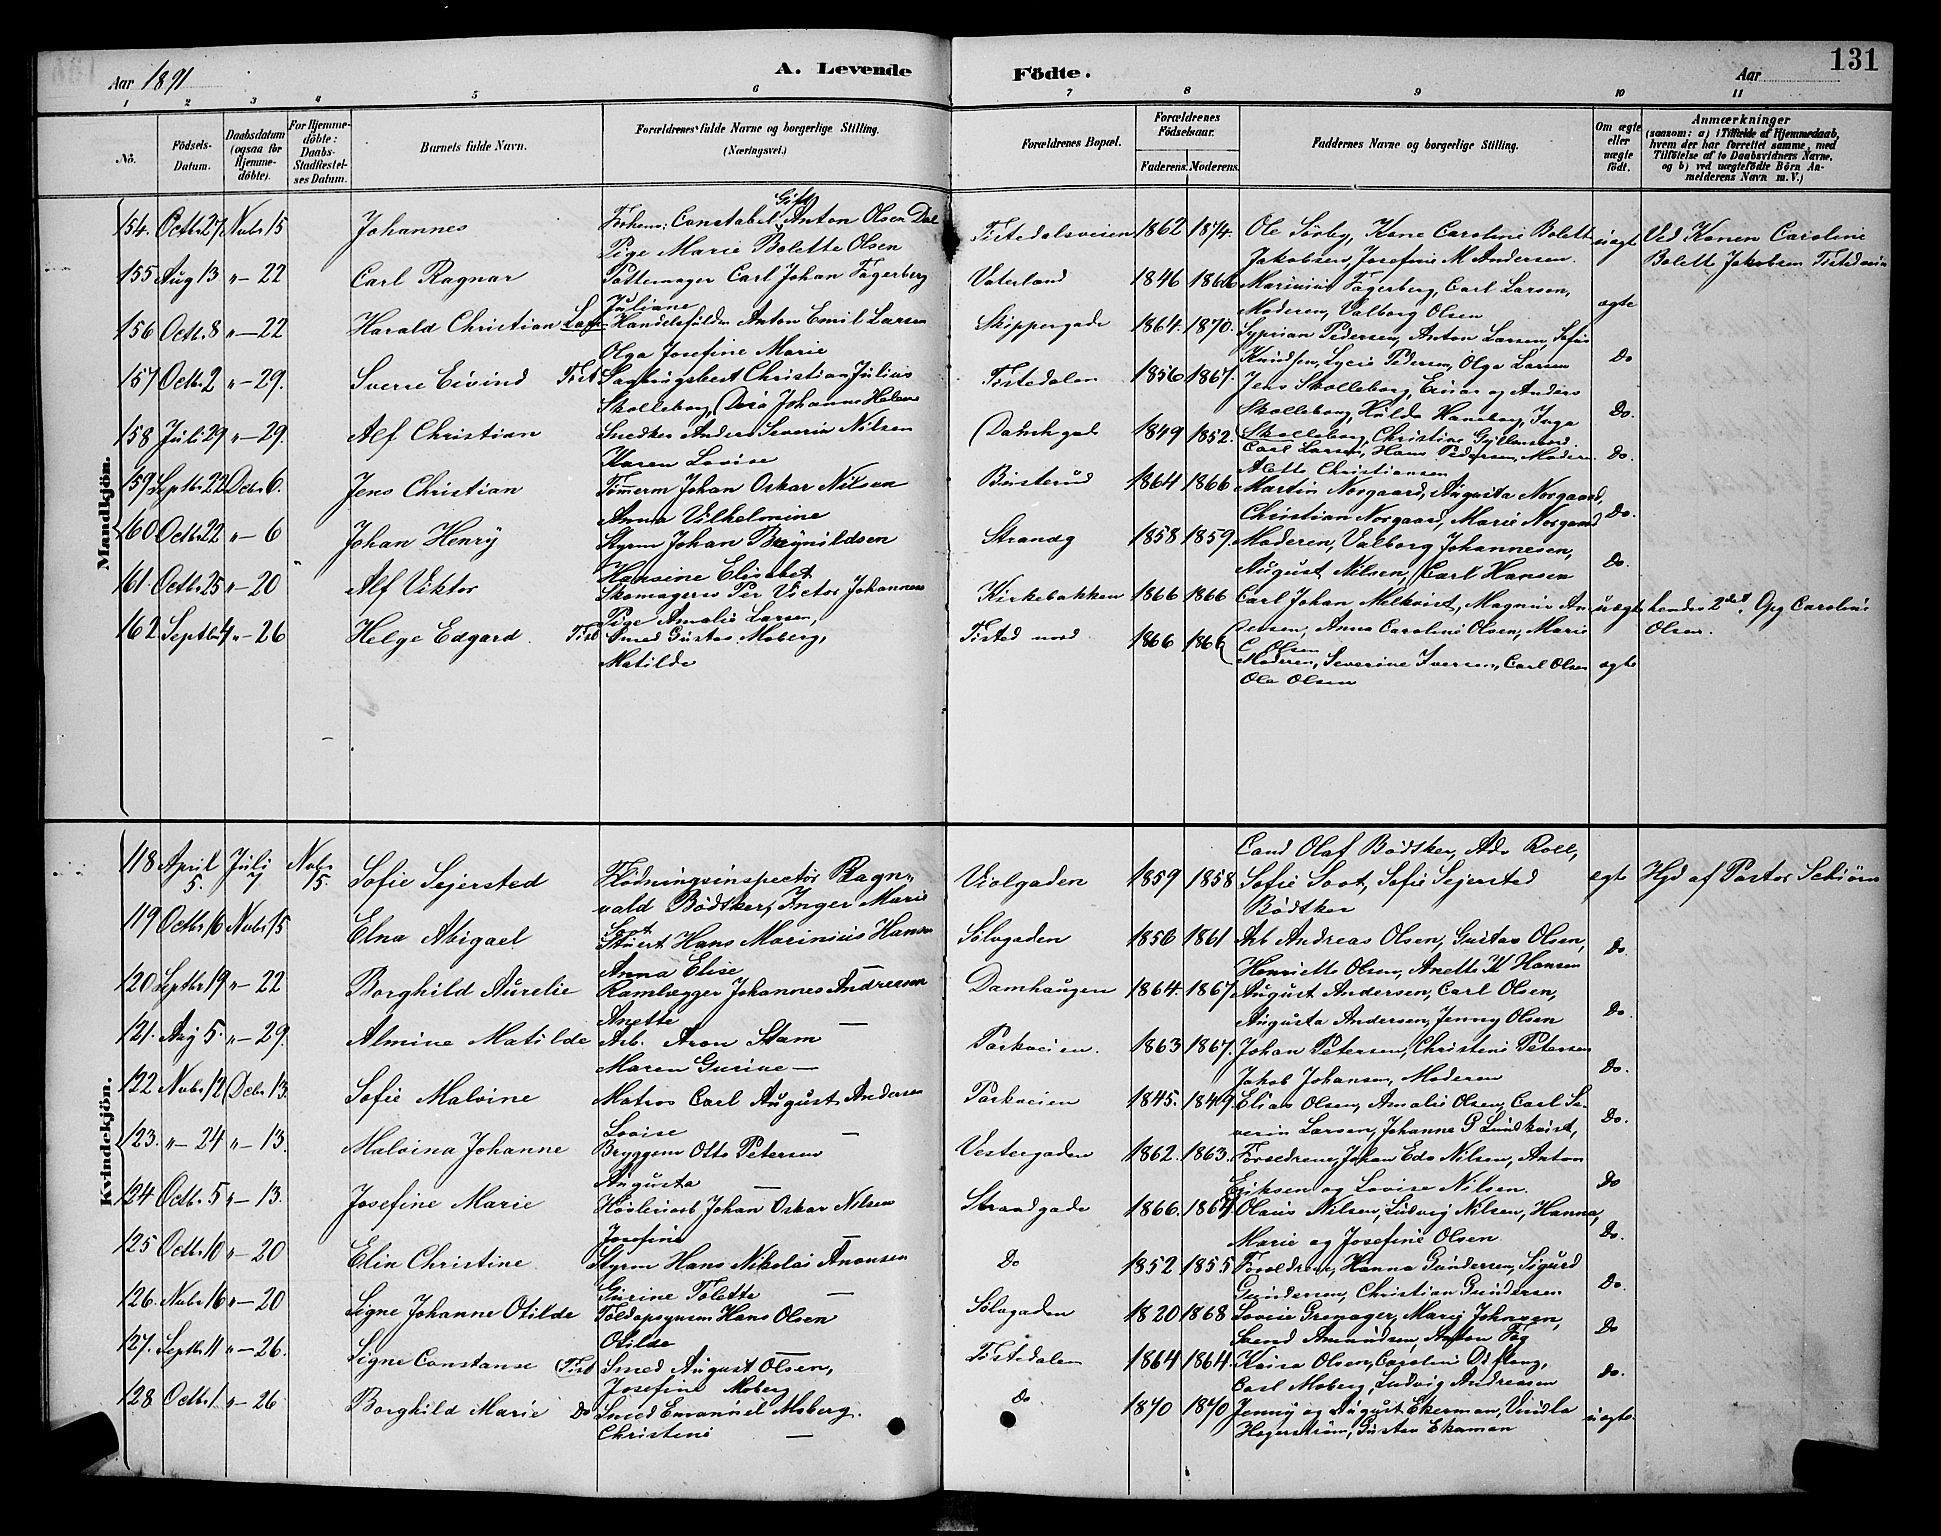 131
Aar 1891
A. Levende Födte.
Aar
1 2 3 4 5 6 7 8 9 10 11
No.
Födsels-Datum.
Daabsdatum (ogsaa for Hjemme-döbte).
For Hjemme-döbte: Daabs-Stadfæstel-ses Datum.
Barnets fulde Navn.
Forældrenes fulde Navne og borgerlige Stilling. (Næringsvei.)
Forældrenes Bopæl.
Forældrenes Födselsaar.
Faderens. Moderens.
Faddernes Navne og borgerlige Stilling.
Om ægte eller uægte födt.
Anmærkninger
(saasom: a) i Tilfælde af Hjemmedaab, hvem der har forrettet samme, med Tilföielse af to Daabsvidners Navne, og b) ved uægtefödte Börn An-melderens Navn m. V.)
Mandkjön.
154. Octbr 27 Nvbr 15 Johannes Constabel Gift Anton Olsen Dal Tistedalsveien 1862 1874. Ole Sörby, Kone Caroline Bolett uægt Ved Konen Caroline
Pige Marie Bolette Olsen Jakobsen, Josefine M Andersen. Bolette Jakobsen Tistedveien
155 Aug 13 " - 22 Carl Ragnar Pottemager Carl Johan Fagerberg Vaterland 1846 1866 Marinius Fagerberg, Carl Larsen,
Juliane Moderen, Valborg Olsen ægte
156 Octb. 8 " - 22 Harald Christian Handelsfuldm Anton Emil Larsen Skippergade 1864. 1870. Syprian Pedersen, Anton Larsen, Sofie
Olga Josefine Marie Knudsen, Lycie Pedersen, Olga Larsen Do
157 Octb. 2 " - 29. Sverre Eivind Tist Christian Julius Tistedalen 1856 1867. Jens Skolleborg, Einar og Anders
Skolleborg, Johanne Helene Skolleborg, Hulda Hansberg, Inga Do.
158 Juli 29 " - 29. Alf Christian Snedker Anders Severin Nilsen Damhgade 1849 1852. Skolleborg, Christine
Karen Lovise Carl Larsen, Hans Pedersen, Moderen Do.
159 Septbr 22 Dcbr 6. Jens Christian Tömerm Johan Oskar Nilsen 1864 1866 Alette Christiansen
Martin Norgaard, Augusta Norgaard,
Anna Vilhelmine Christian Norgaard, Marie Norgaard Do.
160 Octbr 22 " - 6 Johan Henry Styrm Johan Brynildsen Strandg 1858 1859. Moderen, Valborg Johannesen,
Hansine Elisabet August Nilsen, Carl Hansen Do.
161. Octbr 25 " - 20 Alf Viktor Skomagersv Per Victor Johannesen Kirkebakken 1866 1866 Carl Johan Melkvist, Magnus An- uægte hendes 2det, Opg Caroline
Pige Amalie Larsen, dersen, Anna Caroline Olsen, Marie Olsen.
C. Olsen
162 Septbr 4 " - 26 Helge Edgard Tist Smed Gustav Moberg, Tisted nord 1866 1866 Moderen, Severine Iversen, Carl Olsen ægte
Matilde Ole Olsen
Kvindekjön.
118 April 5. Juli 7 Nvbr 15. Sofie Sejersted Flödningsinspectör Ragn- Violgaden 1859 1858 Cand Olaf Bödtker, Adv Roll,
vald Bödtker, Inger Marie Sofie Soot, Sofie Sejersted ægte Hjd af Pastor Schiörn
Soot Bödtker
119 Octbr 16 Nvbr 15 Elna Abigael Stuert Hans Marinius Hansen Sölvgaden 1856 1861 Arb Andreas Olsen, Gustav Olsen,
Anna Elise — Henriette Olsen, Anette K Hansen Do
120 Septbr 19 " - 22 Borghild Aurelie Ramlægger Johannes Andresen Damhaugen 1864. 1867. August Andersen, Carl Olsen,
Anette — Augusta Andersen, Jenny Olsen Do.
121. Aug 5. " - 29. Almine Matilde Arb. Aron Stam Parkveien. 1863 1867. Johan Petersen, Christine Petersen
Maren Gurine — Jakob Johansen, Moderen Do.
122 Nvbr 12 Dcbr 13. Sofie Malvine Matros Carl August Andersen Parkveien 1845. 1849. Elias Olsen, Amalie Olsen, Carl Se-
Lovise — verin Larsen, Johanne G Lundkvist, Do.
123. " - 24 " - 13. Malvina Johanne Bryggem Otto Petersen Vestergaden 1862. 1863. Foreldrene, Johan Edv Nilsen, Anton
Augusta — Eriksen og Lovise Nilsen. Do
124 Octb. 5 " - 13. Josefine Marie Hövleriarb Johan Oskar Nilsen Strandgade 1866. 1867. Olaus Nilsen, Ludvig Nilsen, Hanna,
Josefine — Marie og Josefine Olsen Do.
125 Octb. 10 " - 20 Elin Christine Styrm Hans Nikolai Anonsen Do 1852 1855 Foreldrene, Hanna Gundersen, Sigurd
Gurine Tolette — Gundersen, Christian Gundersen Do.
126. Nvbr 16 " - 20 Signe Johanne Otilde Toldopsynsm Hans Olsen Sölvgaden 1820 1868 Lovise Grenager, Marij Johnsen,
Otilde — Svend Amundsen, Anton Fag Do
127. Septbr 11 " - 26. Signe Constanse (Tist Smed August Olsen, Tistedalen 1864 1864. Kaisa Olsen, Caroline
Josefine Moberg Carl Moberg, Ludvig Andreasen Do.
128 Octb. 1 " - 26 Borghild Marie Do Smed Emanuel Moberg. Do. 1870 1870 Jenny og August Ekerman,
Christine — Hegerström, Gustav Ekaman uægte